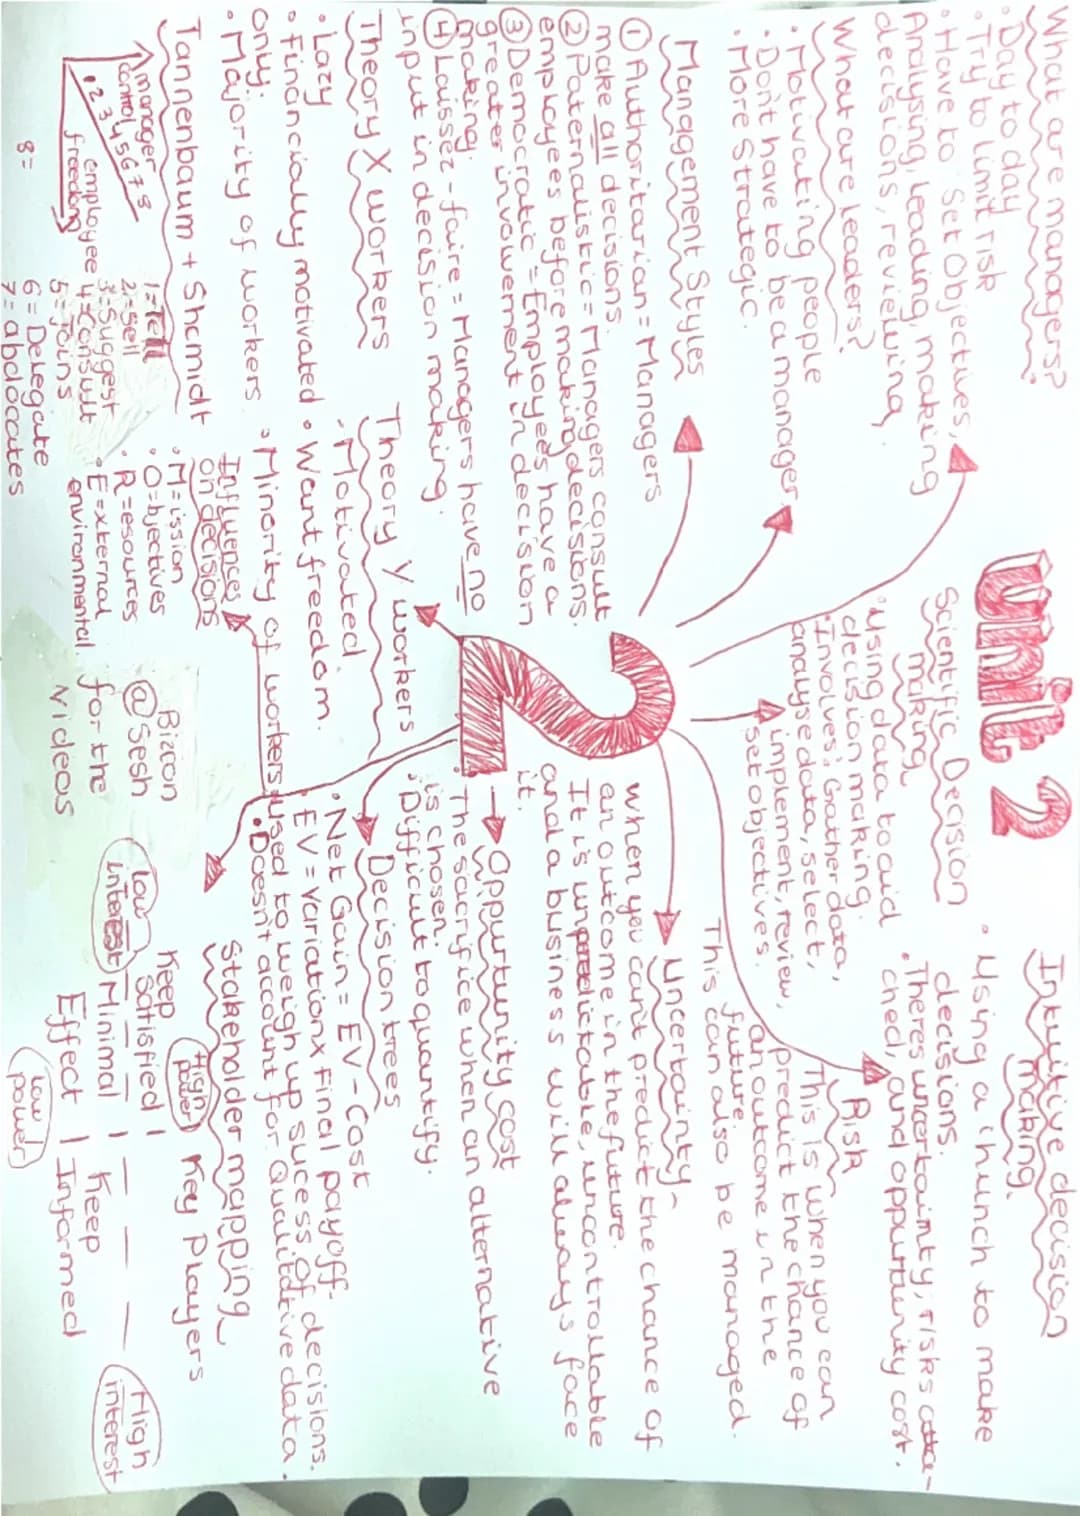 unit 2
2
What are managers?
• Day to day
• Try to limit risk
• Have to: Set Objectives,
Analysing, leading, making
decisions, reviewing.
What are leaders?
• Motivating people
• Don't have to be a manager
• More Strategic.
Management Styles
① Authoritarian = Managers
make all decisions.
② Paternalistic = Managers consult
employees before making decisions.
③ Democratic = Employees have a
greater involvement in decision
making.
④ Laissez-faire = Managers have no
input in decision making.
Theory X workers
• Lazy
• Financially motivated
only.
• Majority of workers
Theory Y workers
• Motivated.
• Want freedom.
• Minority of workers
Tannenbaum + Shcmidlt
manager
control
• 2 3 4 5 6 7 8
employee
freedom
1 = Tell
2 = Sell
3 = Suggest
4 = Consult
5 = Joins
6 = Delegate
7 = abdocates
8 =
Influences
on decisions
• M = ission
• O = bjectives
• R = esources
• E = xternal
environmental.
Bizcon
@Sesh
for the
videos
Scientific Decision
making
• Using data to aid
decision making.
• Involves: Gather data,
analyse data, select,
implement, review,
set objectives.
Intuitive decision
making.
• Using a 'hunch' to make
decisions.
• Theres uncertainty, risks atta-
ched, and oppurtunity cost.
Risk
This is when you can
predict the chance of
an outcome in the
future.
This can also be managed.
Uncertainty
When you cant predict the chance of
an outcome in the future.
It is unpredictable, uncontrollable
and a business will always face
it.
Oppurtunity cost
• The sacrifice when an alternative
is chosen.
• Difficult to quantify.
Decision trees
• Net Gain = EV - Cost
• EV = variation x Final payoff.
• Used to weigh up sucess of decisions.
• Doesn't account for qualitative data.
Stakeholder mapping
High
power
Keep
satisfied
Key Players
Low
interest
High
interest
Minimal
Effect
Keep
Informed
low
power